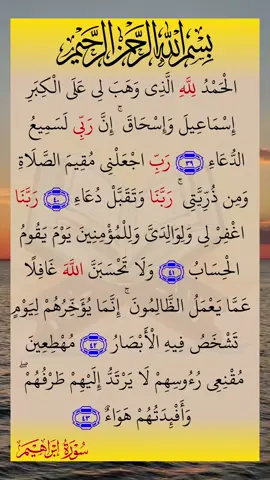 بِسْمِ اللَّهِ الرَّحْمَٰنِ الرَّحِيمِ
الْحَمْدُ لِلَّهِ الَّذِي وَهَبَ لِي عَلَى الْكِبَرِ
إِسْمَاعِيلَ وَإِسْحَاقَ ۚ إِنَّ رَبِّي لَسَمِيعُ
الدُّعَاءِ ٣٩ رَبِّ اجْعَلْنِي مُقِيمَ الصَّلَاةِ
وَمِن ذُرِّيَّتِي ۚ رَبَّنَا وَتَقَبَّلْ دُعَاءِ ٤٠ رَبَّنَا
اغْفِرْ لِي وَلِوَالِدَيَّ وَلِلْمُؤْمِنِينَ يَوْمَ يَقُومُ
الْحِسَابُ ٤١ وَلَا تَحْسَبَنَّ اللَّهَ غَافِلًا
عَمَّا يَعْمَلُ الظَّالِمُونَ ۚ إِنَّمَا يُؤَخِّرُهُمْ لِيَوْمٍ
تَشْخَصُ فِيهِ الْأَبْصَارُ ٤٢ مُهْطِعِينَ
مُقْنِعِي رُءُوسِهِمْ لَا يَرْتَدُّ إِلَيْهِمْ طَرْفُهُمْ ۖ
وَأَفْئِدَتُهُمْ هَوَاءٌ ٤٣
سُورَةُ إِبْرَاهِيمَ